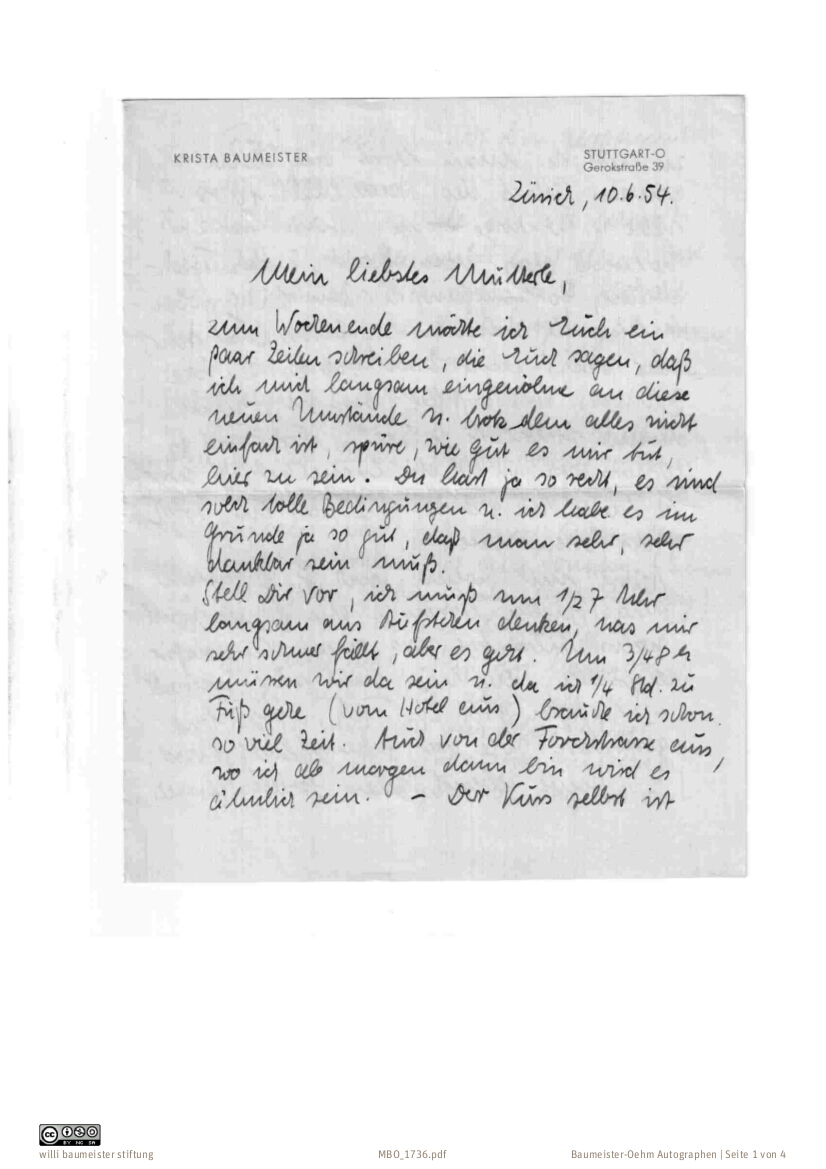 KRISTA BAUMEISTER
STUTTGART-O
Gerokstraße 39
Zürich, 10.6.54.
Mein liebstes Mutterle,
zum Wochenende möchte ich Euch ein
paar Zeilen schreiben, die Euch sagen, daß
ich mich langsam eingewöhne an diese
neuen Umstände u. trotzdem alles nicht
einfach ist, spüre, wie gut es mir tut,
hier zu sein. Du hast ja so recht, es sind
solch tolle Bedingungen u. ich habe es im
Grunde ja so gut, daß man sehr, sehr
dankbar sein muß.
Stell Dir vor, ich muß um 1/2 7 Uhr
langsam ans Aufstehen denken, was mir
sehr schwer fällt, aber es geht. Um 3/4 8 h
müssen wir da sein u. da ich 1/4 Std. zu
Fuß gehe (vom Hotel aus) brauche ich schon
so viel Zeit. Auch von der Forchstrasse aus,
wo ich ab morgen dann bin wird es
ähnlich sein. – Der Kurs selbst ist
CC BY NC SA
willi baumeister stiftung
MBO_1736.pdf
Baumeister-Oehm Autographen | Seite 1 von 4